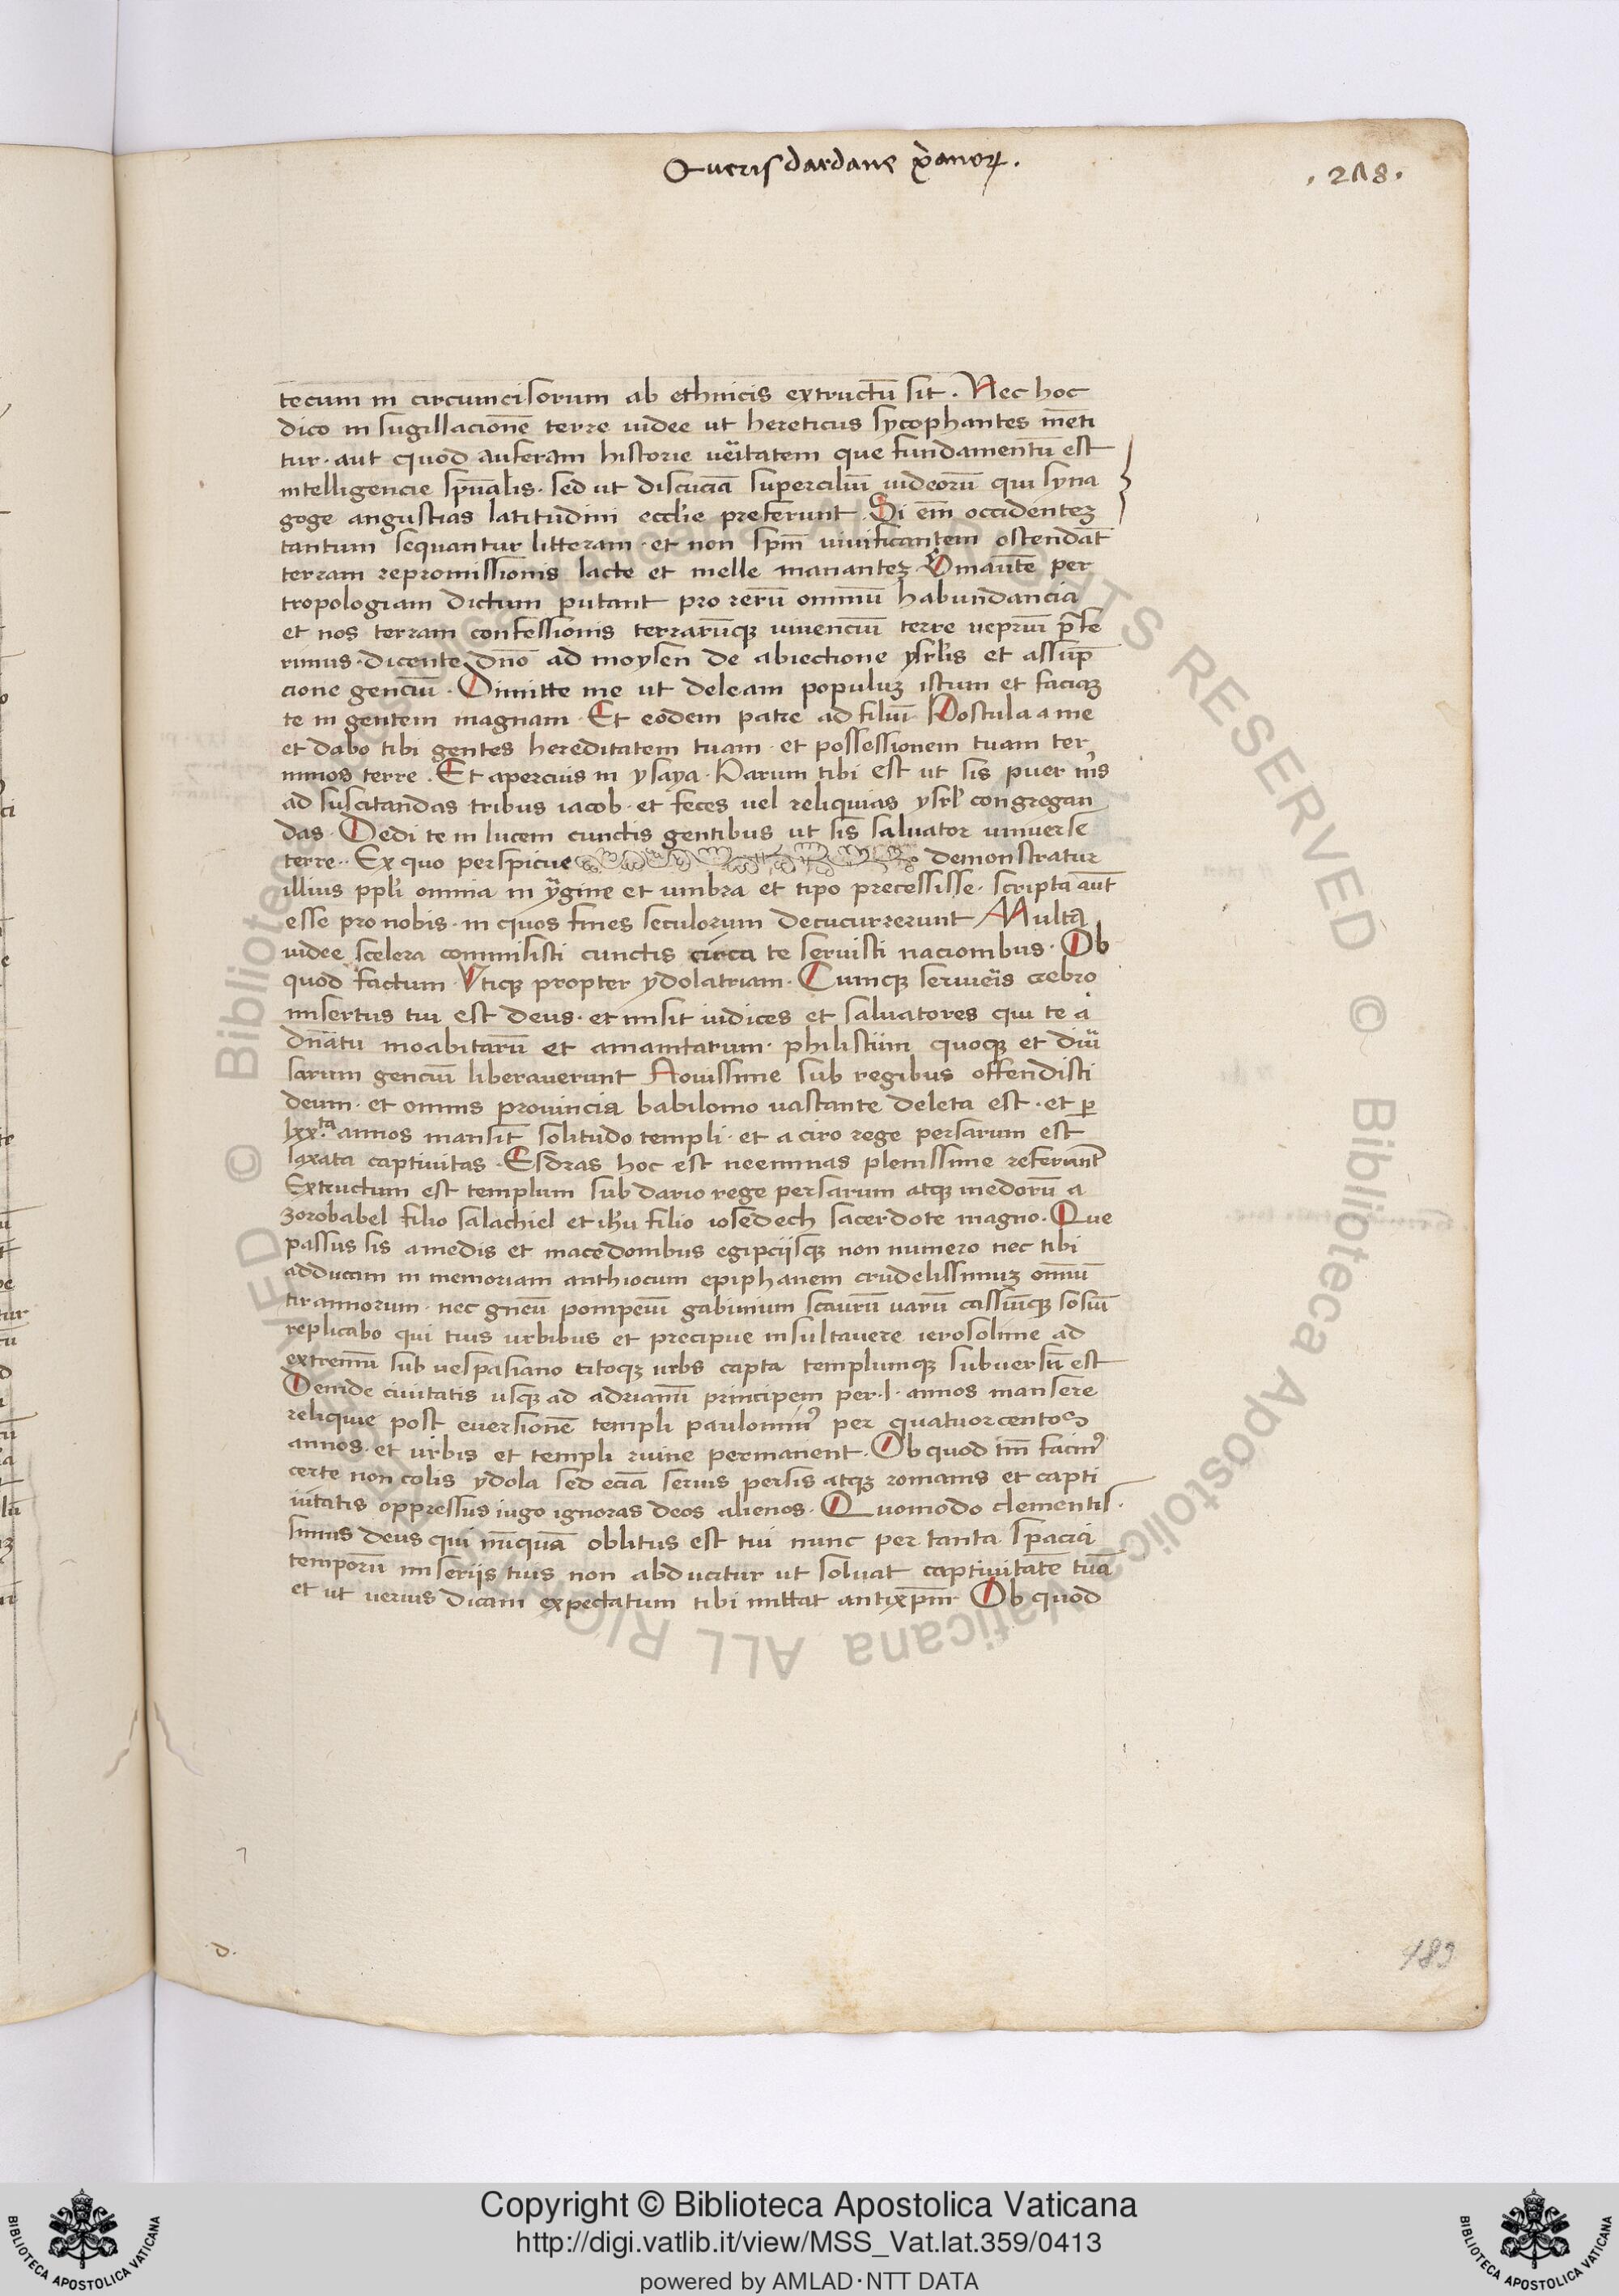 Queris dardane xp̄anoꝝ.
. 218 .
tecum in circumcisorum ab ethnicis extructū sit . Nec hoc
dico in sugillacionē terre iudee ut hereticus sycophantes mēti
tur · aut quod auferam historie ueritatem que fundamentū est
intelligencie sp̄ualis · sed ut discuciā superciliū iudeorū qui syna
goge angustias latitudini eccl̄ie preferunt . Si em̄ occidentēꝫ
tantum sequantur litteram · et non sp̄m vivificantem ostendāt
terram repromissionis lacte et melle manantēꝫ . Sin autē per
tropologiam dictum putant pro rerū omniū habundancia
et nos terram confessionis terrarūqꝫ viuenciū terre ueprium p̄fe
rimus · dicente dn̄o ad moysen de abiectione ysrl̄is et assūp̄
cione genciū · Dimitte me ut deleam populuꝫ istum et faciaꝫ
te in gentem magnam · Et eodem patre ad filiū · Postula a me
et dabo tibi gentes hereditatem tuam · et possessionem tuam ter
minos terre . Et apercius in ysaya · Parum tibi est ut sis puer m̄s
ad suscitandas tribus iacob · et feces uel reliquias ysrl̄ congregan
das · Dedi te in lucem cunctis gentibus ut sis saluator uniuerse
terre · Ex quo perspicue demonstratur
illius pp̄li omnia in ymagine et umbra et tipo precessisse · scripta aūt
esse pro nobis · in quos fines seculorum decucurrerunt Multa
iudee scelera commisisti cunctis circa te seruisti nacionibus · Ob
quod factum · Vtiqꝫ propter ydolatriam · Cumqꝫ seruieris crebro
misertus tui est deus · et misit iudices et saluatores qui te a
dn̄atu moabitarū et amanitarum · philistiim quoqꝫ et diu̾
sarum genciū liberauerunt Nouissime sub regibus offendisti
deum · et omnis prouincia babilonio uastante deleta est · et ꝑ
lxx.ᵗᵃ annos mansit solitudo templi · et a ciro rege persarum est
laxata captiuitas · Esdras hoc est neemias plenissime referunt
Extructum est templum sub dario rege persarum atqꝫ medorū a
zorobabel filio salachiel et ih̄u filio iosedech sacerdote magno · Que
passus sis a medis et macedonibus egipciisqꝫ non numero nec tibi
adducam in memoriam anthiocum epiphanem crudelissimuꝫ omniū
tirannorum · nec gneū pompeiū gabinium scaurū uarū cassiūqꝫ sosiū
replicabo qui tuis urbibus et precipue insultauere ierosolime ad
extremū sub uespasiano titoqꝫ urbs capta templumqꝫ subuersū est
Deinde ciuitatis usqꝫ ad adrianū principem per · l · annos mansere
reliquie post euersionē templi paulomin᾿ per quatuorcentos
annos · et urbis et templi ruine permanent · Ob quod tm̄ facin᾿
certe non colis ydola sed eciā seruis persis atqꝫ romanis et capti
uitatis oppressus iugo ignoras deos alienos · Quomodo clementis
simus deus qui nūquā oblitus est tui nunc per tanta spacia
temporū miseriis tuis non adducitur ut soluat captiuitatē tuā
et ut uerius dicam expectatum tibi mittat antixp̄m · Ob quod
d.
489
© Biblioteca Apostolica Vaticana ALL RIGHTS RESERVED © Biblioteca Apostolica Vaticana ALL RIGHTS RESERVED
Copyright © Biblioteca Apostolica Vaticana
http://digi.vatlib.it/view/MSS_Vat.lat.359/0413
powered by AMLAD·NTT DATA
BIBLIOTECA APOSTOLICA VATICANA
BIBLIOTECA APOSTOLICA VATICANA